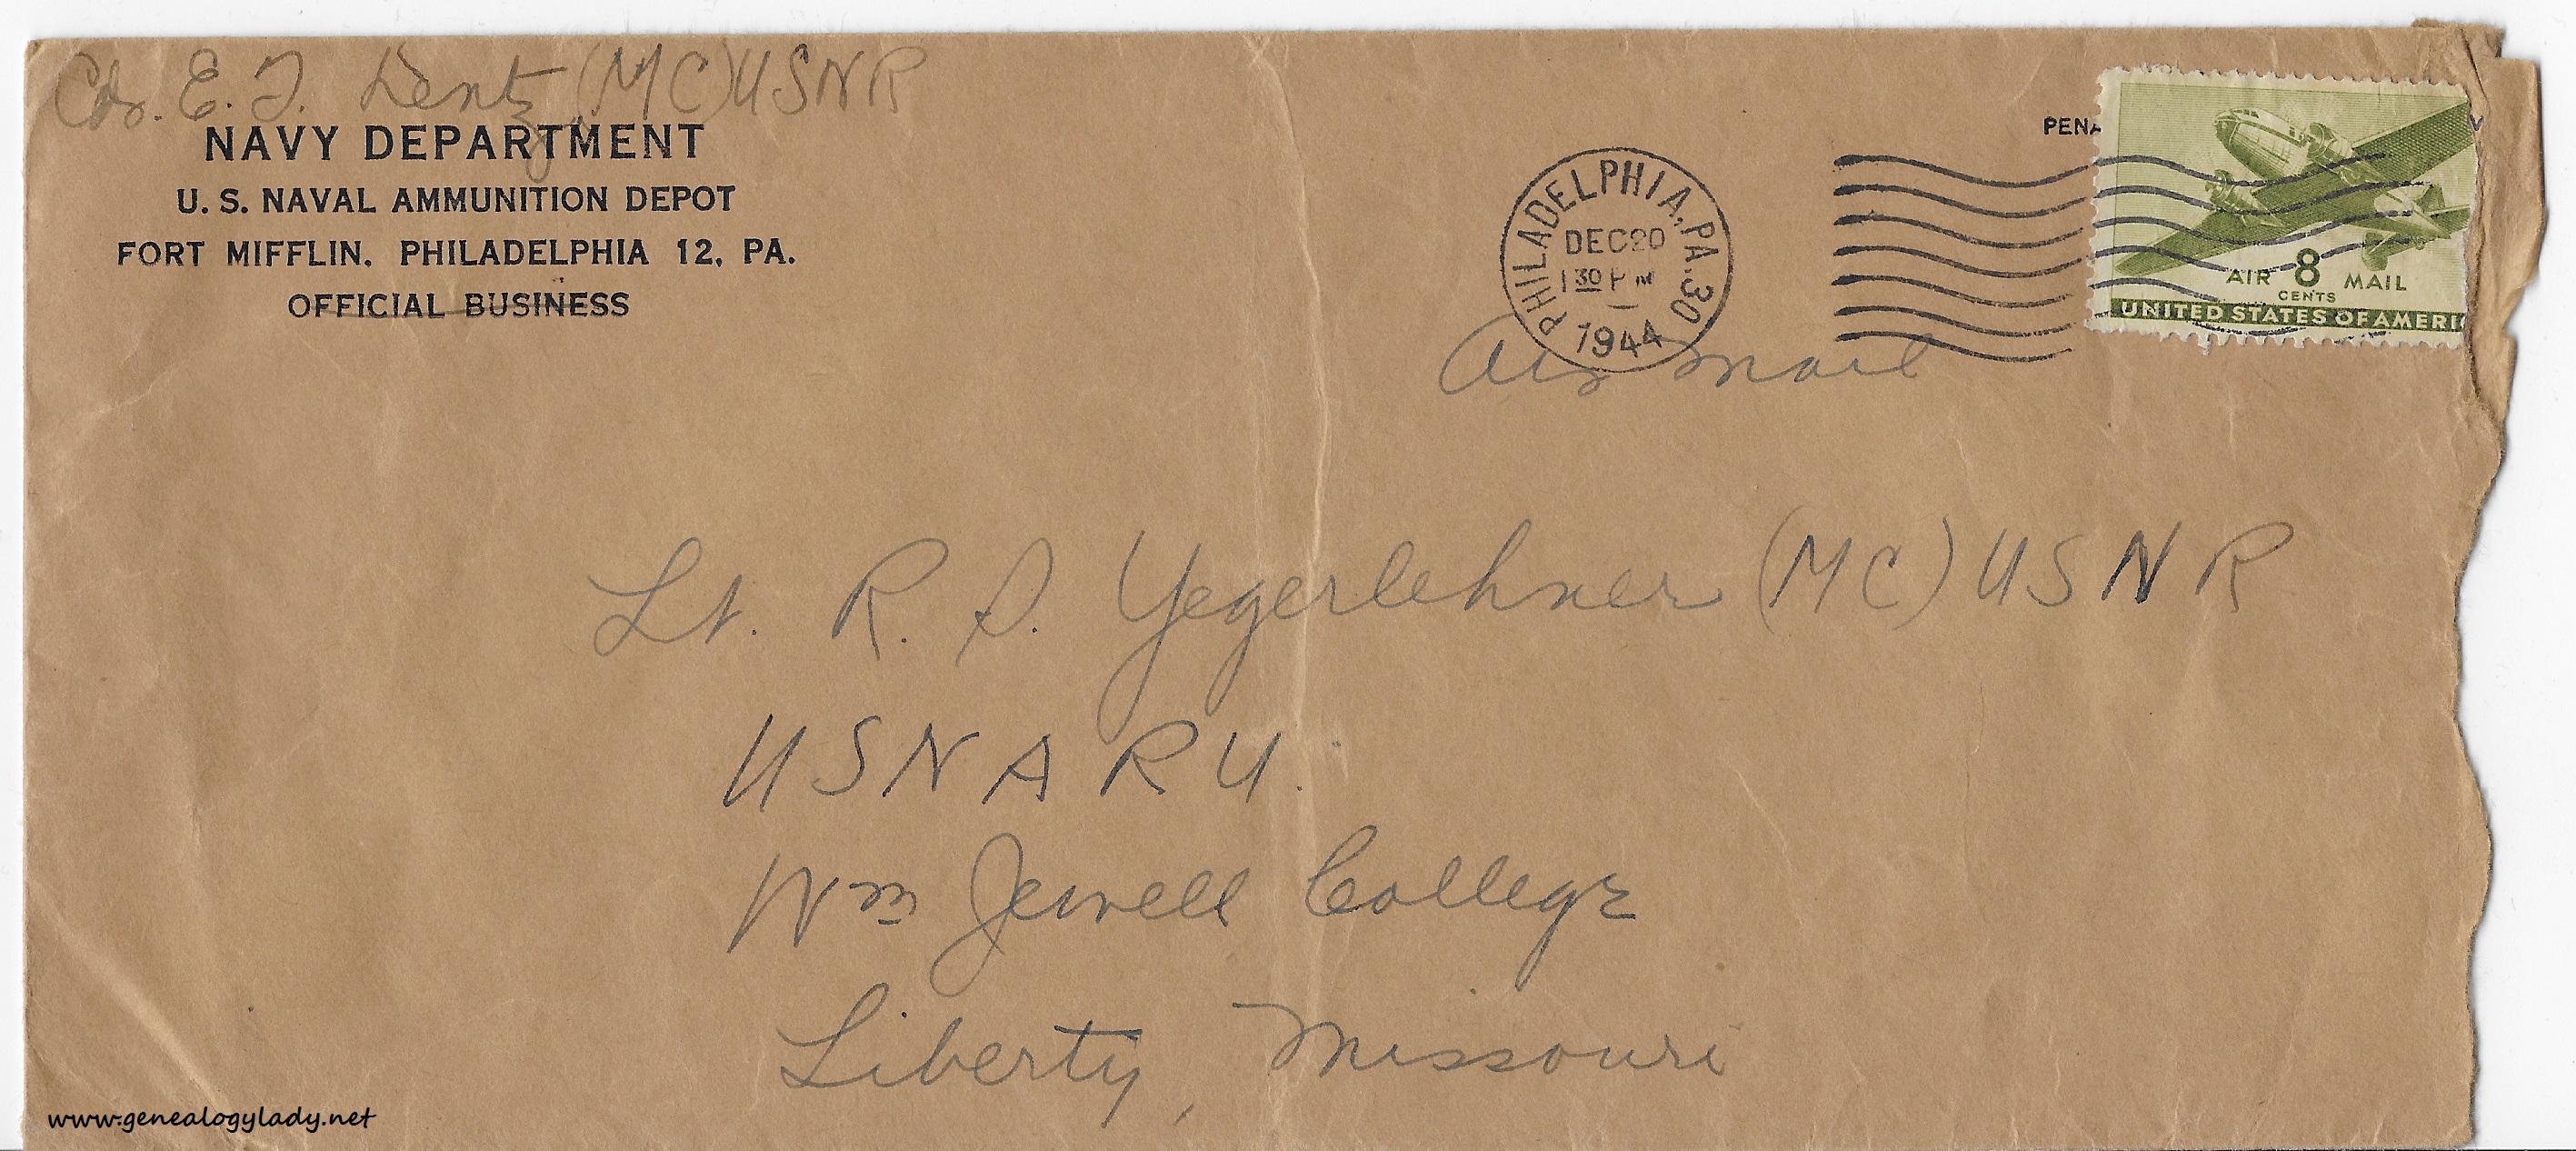 Cdr. E. T. Lentz (MC) USNR
NAVY DEPARTMENT
U. S. NAVAL AMMUNITION DEPOT
FORT MIFFLIN, PHILADELPHIA 12, PA.
OFFICIAL BUSINESS
PHILADELPHIA, PA. 30
DEC 20
1 30 PM
1944
PENA
AIR 8 MAIL
CENTS
UNITED STATES OF AMERI
Air Mail
Lt. R. D. Yegerlehner (MC) USNR
USNARU.
Wm Jewell College
Liberty, Missouri
www.genealogylady.net